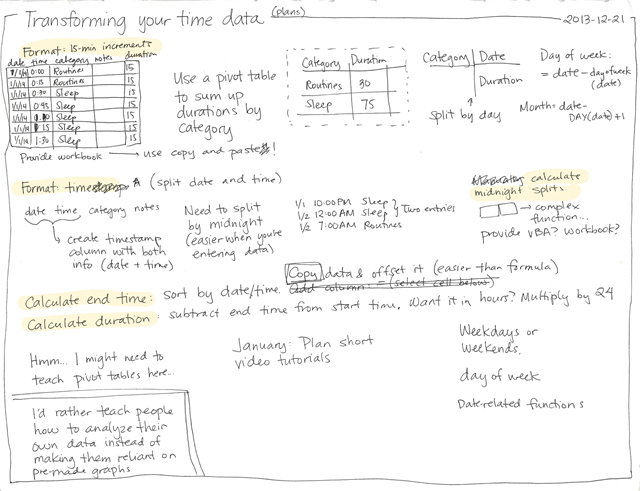 Transforming your time data (plans)
2013-12-21
Format: 15-min increments
date time category notes duration
1/1/14 0:00 Routines 15
1/1/14 0:15 Routines 15
1/1/14 0:30 Sleep 15
1/1/14 0:45 Sleep 15
1/1/14 Sleep 15
1/1/14 1:15 Sleep 15
1/1/14 1:30 Sleep 15
Provide workbook → use copy and paste!
Use a pivot table
to sum up
durations by
category
Category Duration
Routines 30
Sleep 75
Category Date
Duration
split by day
Day of week:
= date - dayofweek
(date)
Month = date -
DAY(date)+1
Format A (split date and time)
date time category notes
create timestamp
column with both
info (date + time)
Need to split
by midnight
(easier when you're
entering data)
1/1 10:00PM Sleep
1/2 12:00AM Sleep
1/2 7:00AM Routines
Two entries
calculate
midnight splits
→ complex
function...
provide VBA? Workbook?
Calculate end time: Sort by date/time. Copy data & offset it (easier than formula)
add column = (select cell below)
Calculate duration: subtract end time from start time. Want it in hours? Multiply by 24
Hmm... I might need to
teach pivot tables here...
January: Plan short
video tutorials
Weekdays or
weekends.
day of week
Date-related functions
I'd rather teach people
how to analyze their
own data instead of
making them reliant on
pre-made graphs